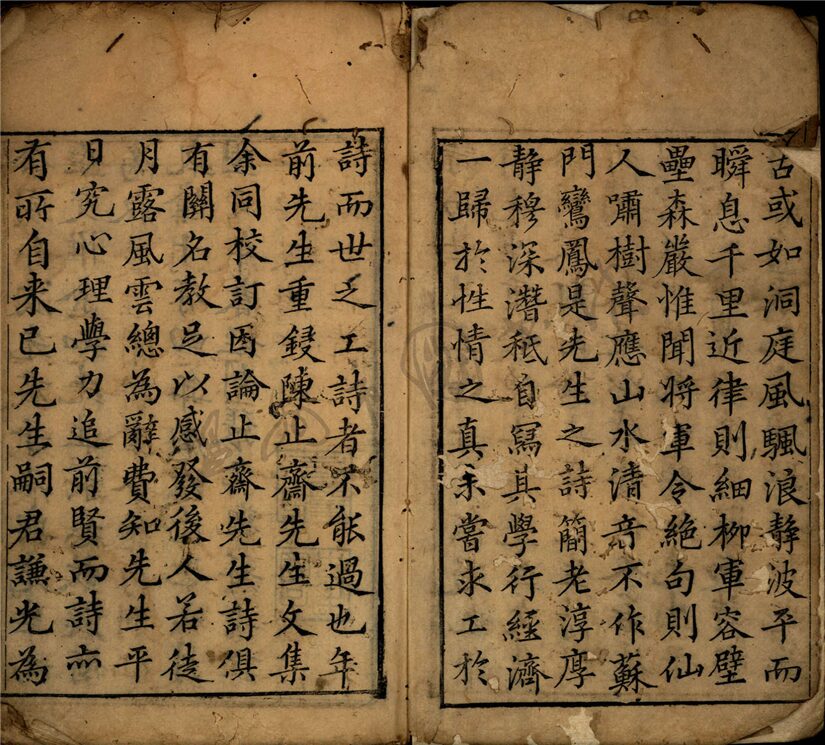 古或如洞庭風颿浪静波平而
瞬息千里近律則細柳軍容壁
壘森嚴惟聞將軍令絶句則仙
人嘯樹聲應山水清音不作蘇
門鸞鳳是先生之詩簡老淳厚
静穆深潛秖自寫其學行經濟
一歸於性情之真未嘗求工於
詩而世之工詩者不能過也年
前先生重鋟陳止齋先生文集
余同校訂因論止齋先生詩俱
有關名教足以感發後人若徒
月露風雲總為辭費知先生平
日究心理學力追前賢而詩亦
有所自来已先生嗣君謙光為